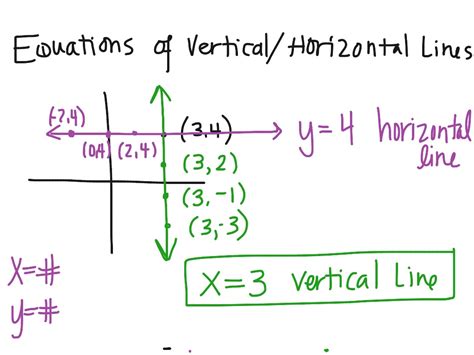 Equations of Vertical/Horizontal Lines
(-2,4)
(0,4) (2,4)
(3,4)
y=4 horizontal
line
(3,2)
(3,-1)
(3,-3)
x=#
y=#
x=3 vertical Line